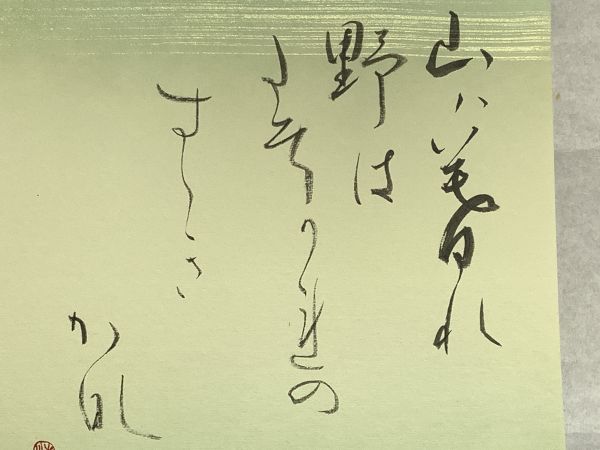 山ハ暮れ
野は
たそかれの
すゝき
かな